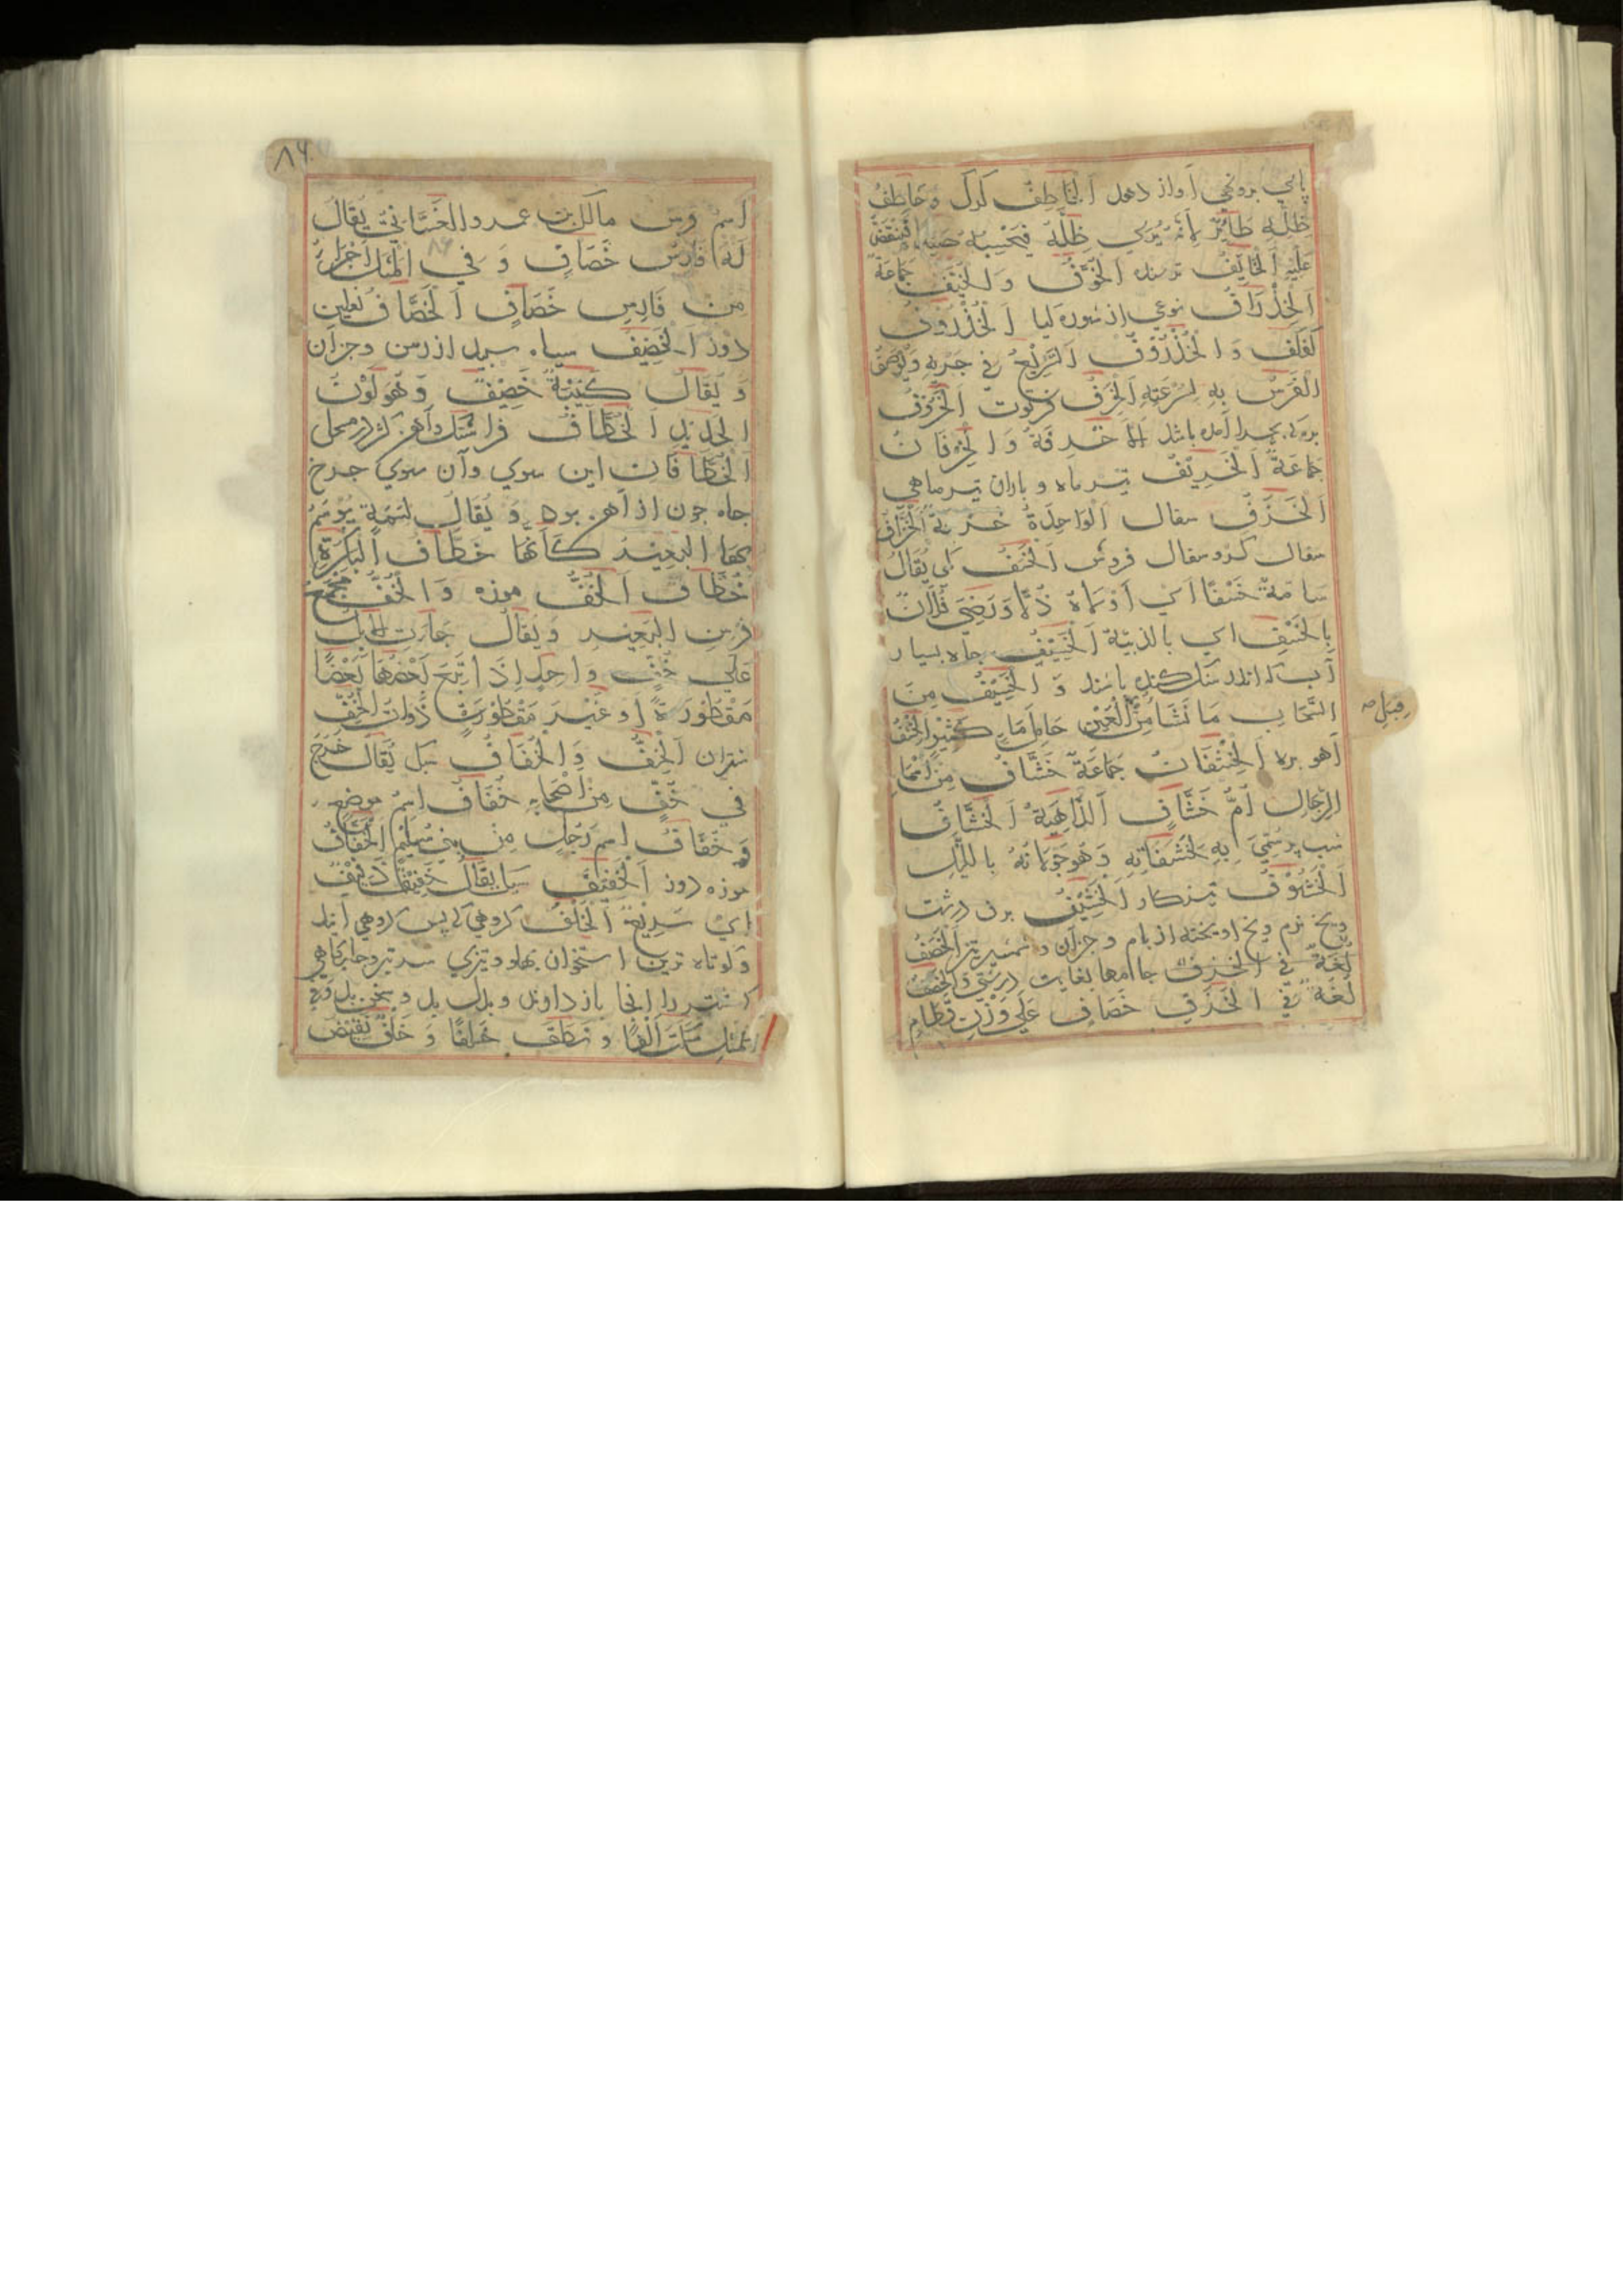 اَلْخَاطِفُ كرك وَخَاطِفُ
ظِلِّهِ طَائِرٌ لِأَنَّهُ يَرَي ظِلَّهُ فَيَحْسِبُهُ صَيْدًا فَيَنْقَضُّ
عَلَيْهِ اَلْخَايِفُ ترسنده اَلْخُوَّفُ وَالْخُيَّفُ جَمَاعَةٌ
اَلْخِذْرَافُ نوعي از شوره كيا اَلْخُذْرُوفُ
وَالْخُذْرُوْفُ اَلسَّرِيْعُ فِي جَرْيِهِ وَيُوصَفُ
الْفَرَسُ بِهِ لِسُرْعَتِهِ اَلْخَرِفُ فرتوت اَلْخَرُوْفُ
بره كه بجرا آمده باشد خَرُوفَةٌ وَالْخِرْفَانُ
جَمَاعَةٌ اَلْخَرِيْفُ تيرماه و باران تيرماهي
اَلْخَزَفُ سفال اَلْوَاحِدَةُ خَزَفَةٌ اَلْخَزَّافُ
سفال كر و سفال فروش اَلْخَسْفُ كمي يُقَالُ
سَامَهُ خَسْفًا اي أَوْلَاهُ ذُلًّا وَرَضِيَ فُلَانٌ
بِالْخَسْفِ اي بِالدَّنِيَّةِ اَلْخَسِيْفُ جاه بسيار
آب كه اندر سنك كنده باشند وَالْخَسِيْفُ مِنَ
السَّحَابِ مَا نَشَا مِنْ قِبَلِ الْعَيْنِ حَامِلَ مَاءٍ كَثِيْرٍ اَلْخِشْفُ
آهو بره اَلْخِشْفَانُ جَمَاعَةٌ خَشَّافٌ مِنْ أَسْمَاءِ
الرِّجَالِ أُمُّ خَشَّافٍ اَلدَّاهِيَةُ اَلْخُشَّافُ
شب پره سُمِّيَ بِهِ لِخَشَفَانِهِ وَهُوَ جَوَلَانُهُ بِاللَّيْلِ
اَلْخَشُوْفُ تيزكار اَلْخَشِيْفُ برف درشت
ويخ نرم ويخ اويخته از بام و جزآن و شمشير تيز اَلْخَصَفُ
لُغَةٌ فِي الْخَزَفِ جاامها بغايت درشتي وَالْخَصَفُ
لُغَةٌ فِي الْخَزَفِ خَصَافِ عَلَي وَزْنِ قَطَامِ
قِبَلِ صح
٨٦
اِسْمُ فرس مالك بن عمرو الغَسَّانِيِّ يُقَالُ
لَهُ فَارِسُ خَصَافِ وَفِي الْمَثَلِ أَجْرَأُ
مِنْ فَارِسِ خَصَافِ اَلْخَصَّافُ نعلين
دوز اَلْخَصِيْفُ سياه سپيد از رسن وجزآن
وَيُقَالُ كَتِيْبَةٌ خَصِيْفٌ وَهُوَ لَوْنُ
الْحَدِيْدِ اَلْخُطَّافُ
اَلْخُطَّافَانِ اين سوي وآن سوي جرخ
جاه جون از آهن بود وَيُقَالُ لِسِمَةٍ يُوْسَمُ
بِهَا الْبَعِيْرُ كَأَنَّهَا خُطَّافُ الْبَكْرَةِ
خُطَّافٌ اَلْخُفُّ موزه وَالْخُفُّ مَجْمَعُ
فِرْسِنِ الْبَعِيْرِ وَيُقَالُ جَاءَتِ الْإِبِلُ
عَلَي خُفٍّ وَاحِدٍ إِذَا تَبِعَ بَعْضُهَا بَعْضًا
مَقْطُوْرَةً أَوْ غَيْرَ مَقْطُوْرَةٍ ذَوَاتُ الْخُفِّ
شتران اَلْخِفُّ وَالْخُفَافُ سبك يُقَالُ خَرَجَ
فِي خِفٍّ مِنْ أَصْحَابِهِ خُفَافٌ اِسْمُ مَوْضِعٍ
وَخُفَافٌ اِسْمُ رَجُلٍ مِنْ بَنِي سُلَيْمٍ اَلْخَفَّافُ
موزه دوز اَلْخَفِيْفُ سبك يُقَالُ خَفِيْفٌ ذَفِيْفٌ
اي سَرِيْعٌ اَلْخَلْفُ كروهي كه پس كروهي آيند
وكوتاه ترين استخوان پهلو وتيزي سر تبر وجايكاهي
كه شتر را انجا باز دارند وبدل بد و سخن بد وَفِي
الْمَثَلِ سَكَتَ أَلْفًا وَنَطَقَ خَلْفًا وَخَلْفٌ نَقِيْضُ